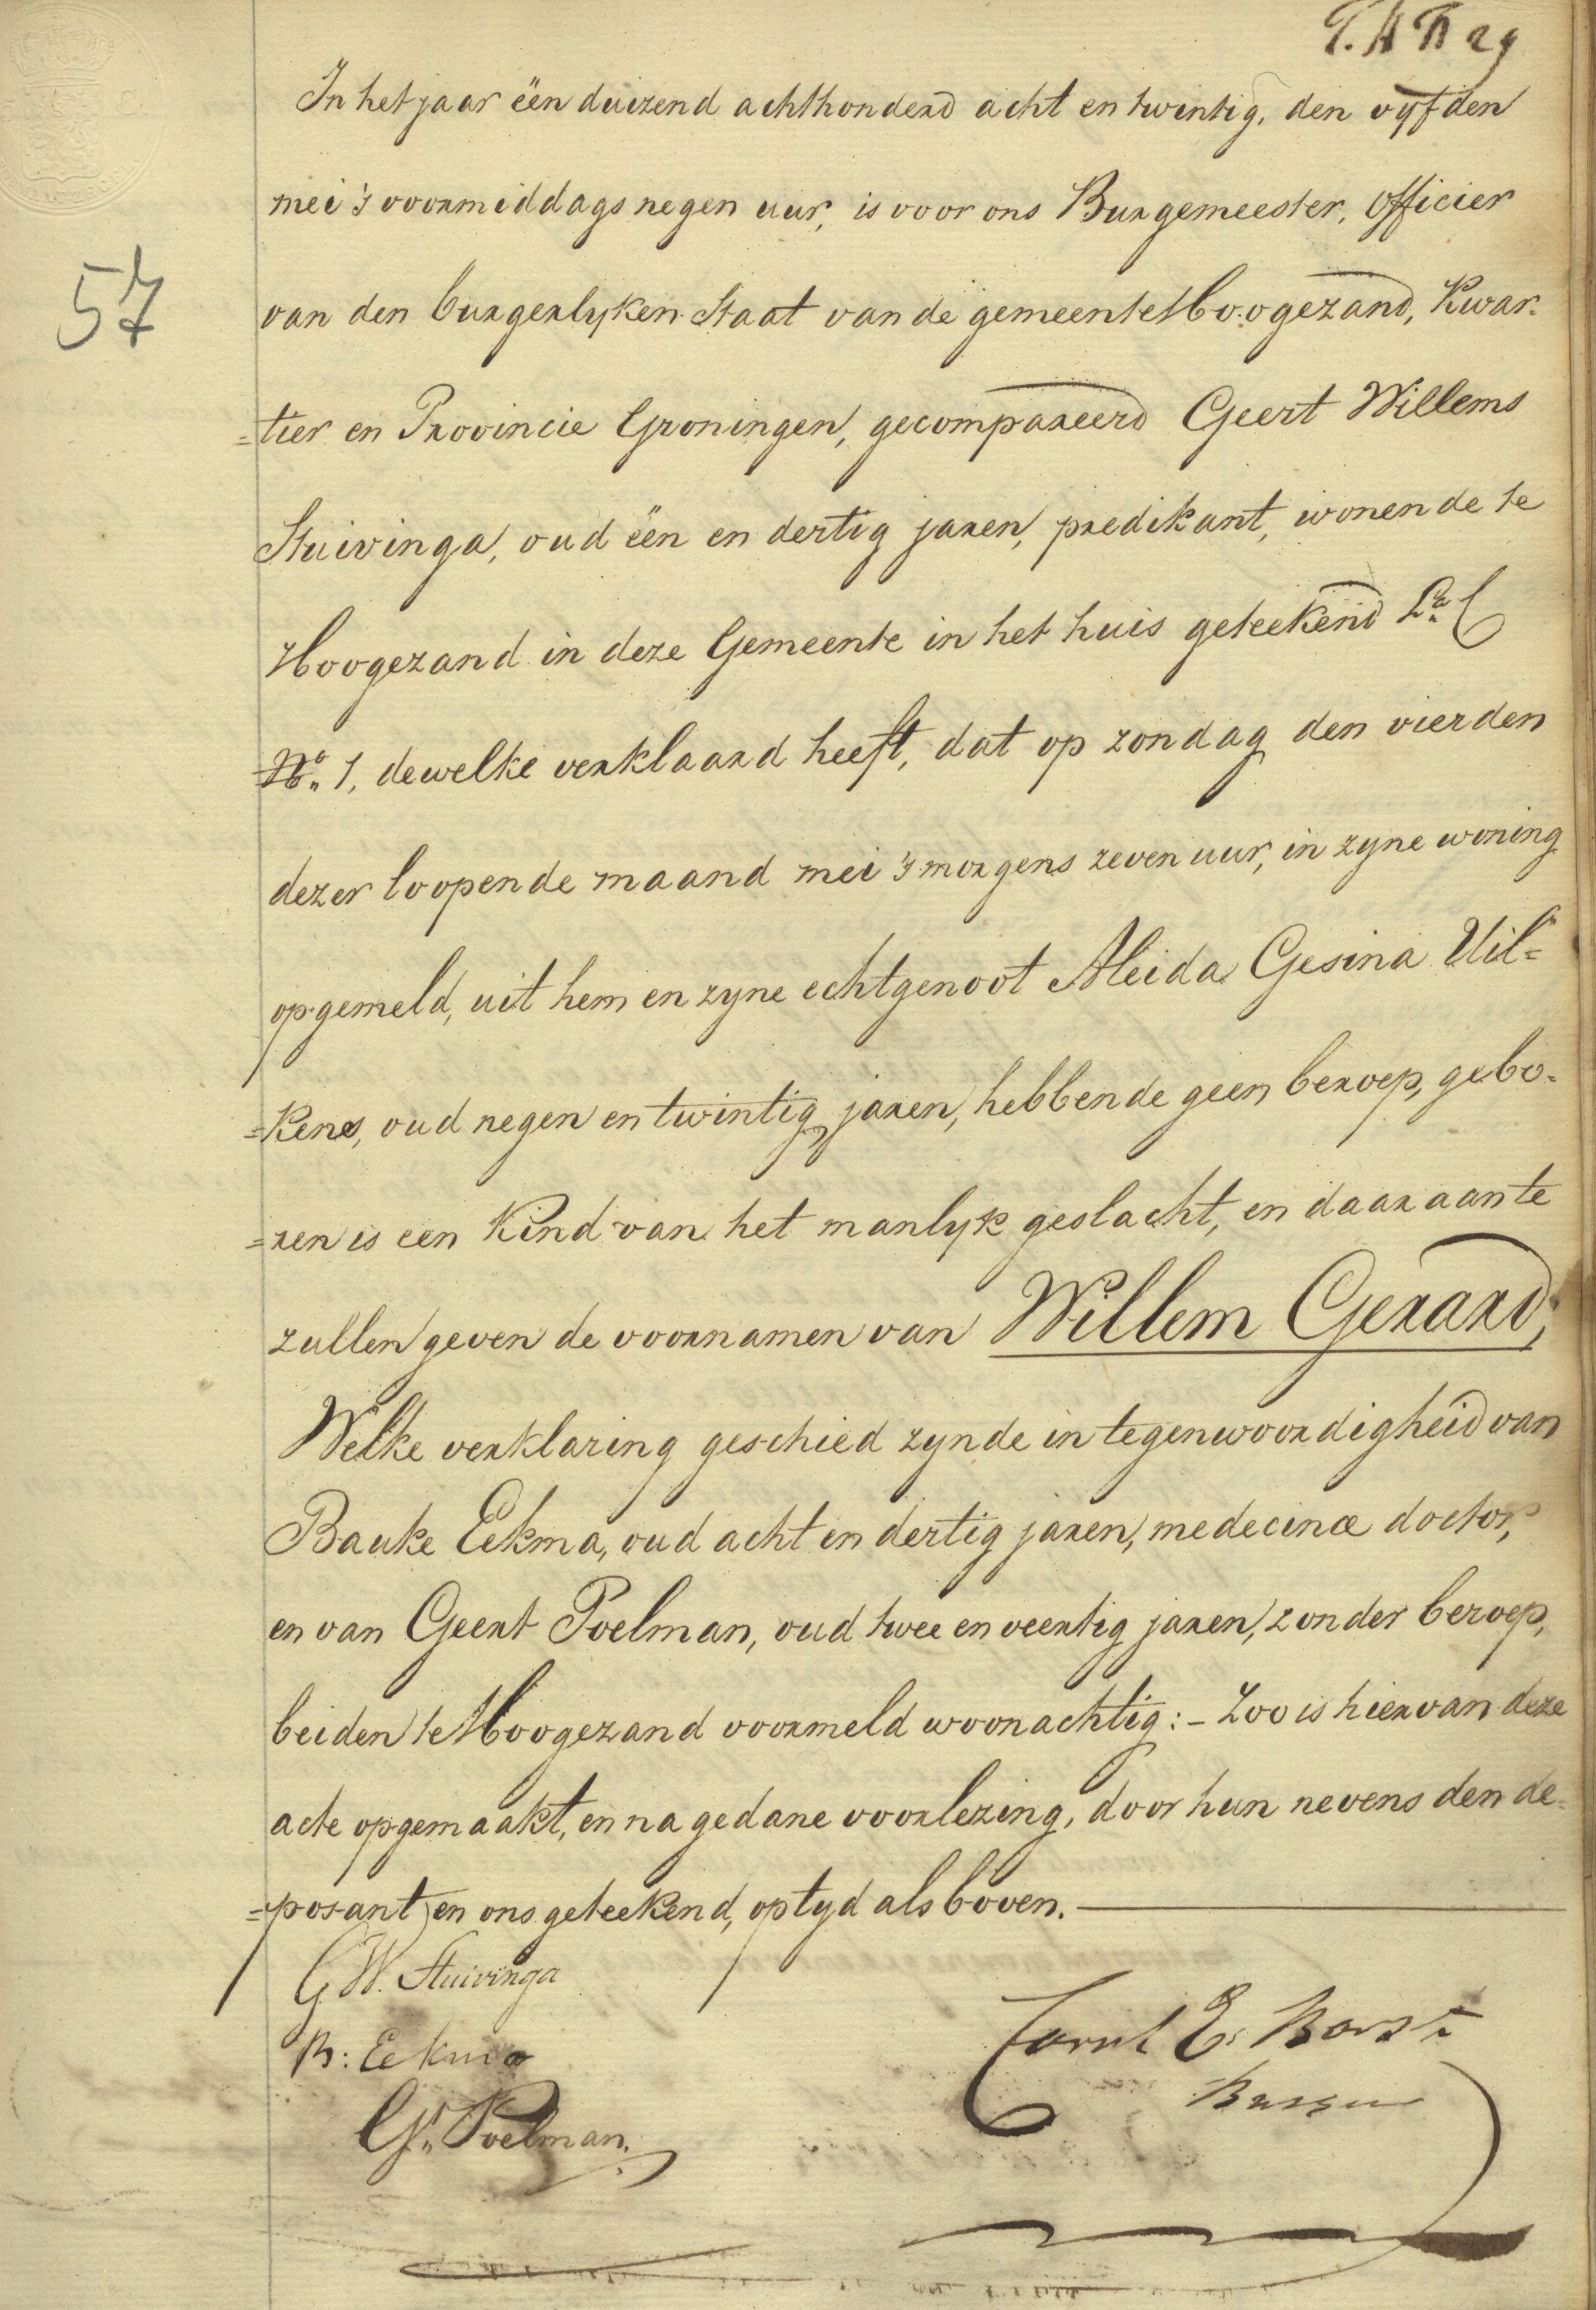 In het jaar ëen duizend achthonderd acht en twintig, den vyfden
57
mei 's voormiddags negen uur, is voor ons Burgemeester, Officier
van den burgerlyken Staat van de gemeente Hoogezand, Kwar-
=tier en Provincie Groningen, gecompareerd Geert Willems
Stuivinga, oud ëen en dertig jaren, predikant, wonende te
Hoogezand in deze Gemeente in het huis geteekend La. C
No. 1, dewelke verklaard heeft, dat op zondag den vierden
dezer loopende maand mei 's morgens zeven uur, in zyne woning
opgemeld, uit hem en zyne echtgenoot Aleida Gesina Uil=
=kens, oud negen en twintig jaren, hebbende geen beroep, gebo-
=ren is een Kind van het manlyk geslacht, en daaraan te
zullen geven de voornamen van Willem Gerard;
Welke verklaring geschied zynde in tegenwoordigheid van
Bauke Eekma, oud acht en dertig jaren, medecinæ doctor,
en van Geert Poelman, oud twee en veertig jaren, zonder beroep,
beiden te Hoogezand voormeld woonachtig: - Zoo is hiervan deze
acte opgemaakt, en na gedane voorlezing, door hun nevens den de=
=posant en ons geteekend, op tyd als boven.
G W. Stuivinga
B: Eekma
Gt. Poelman.